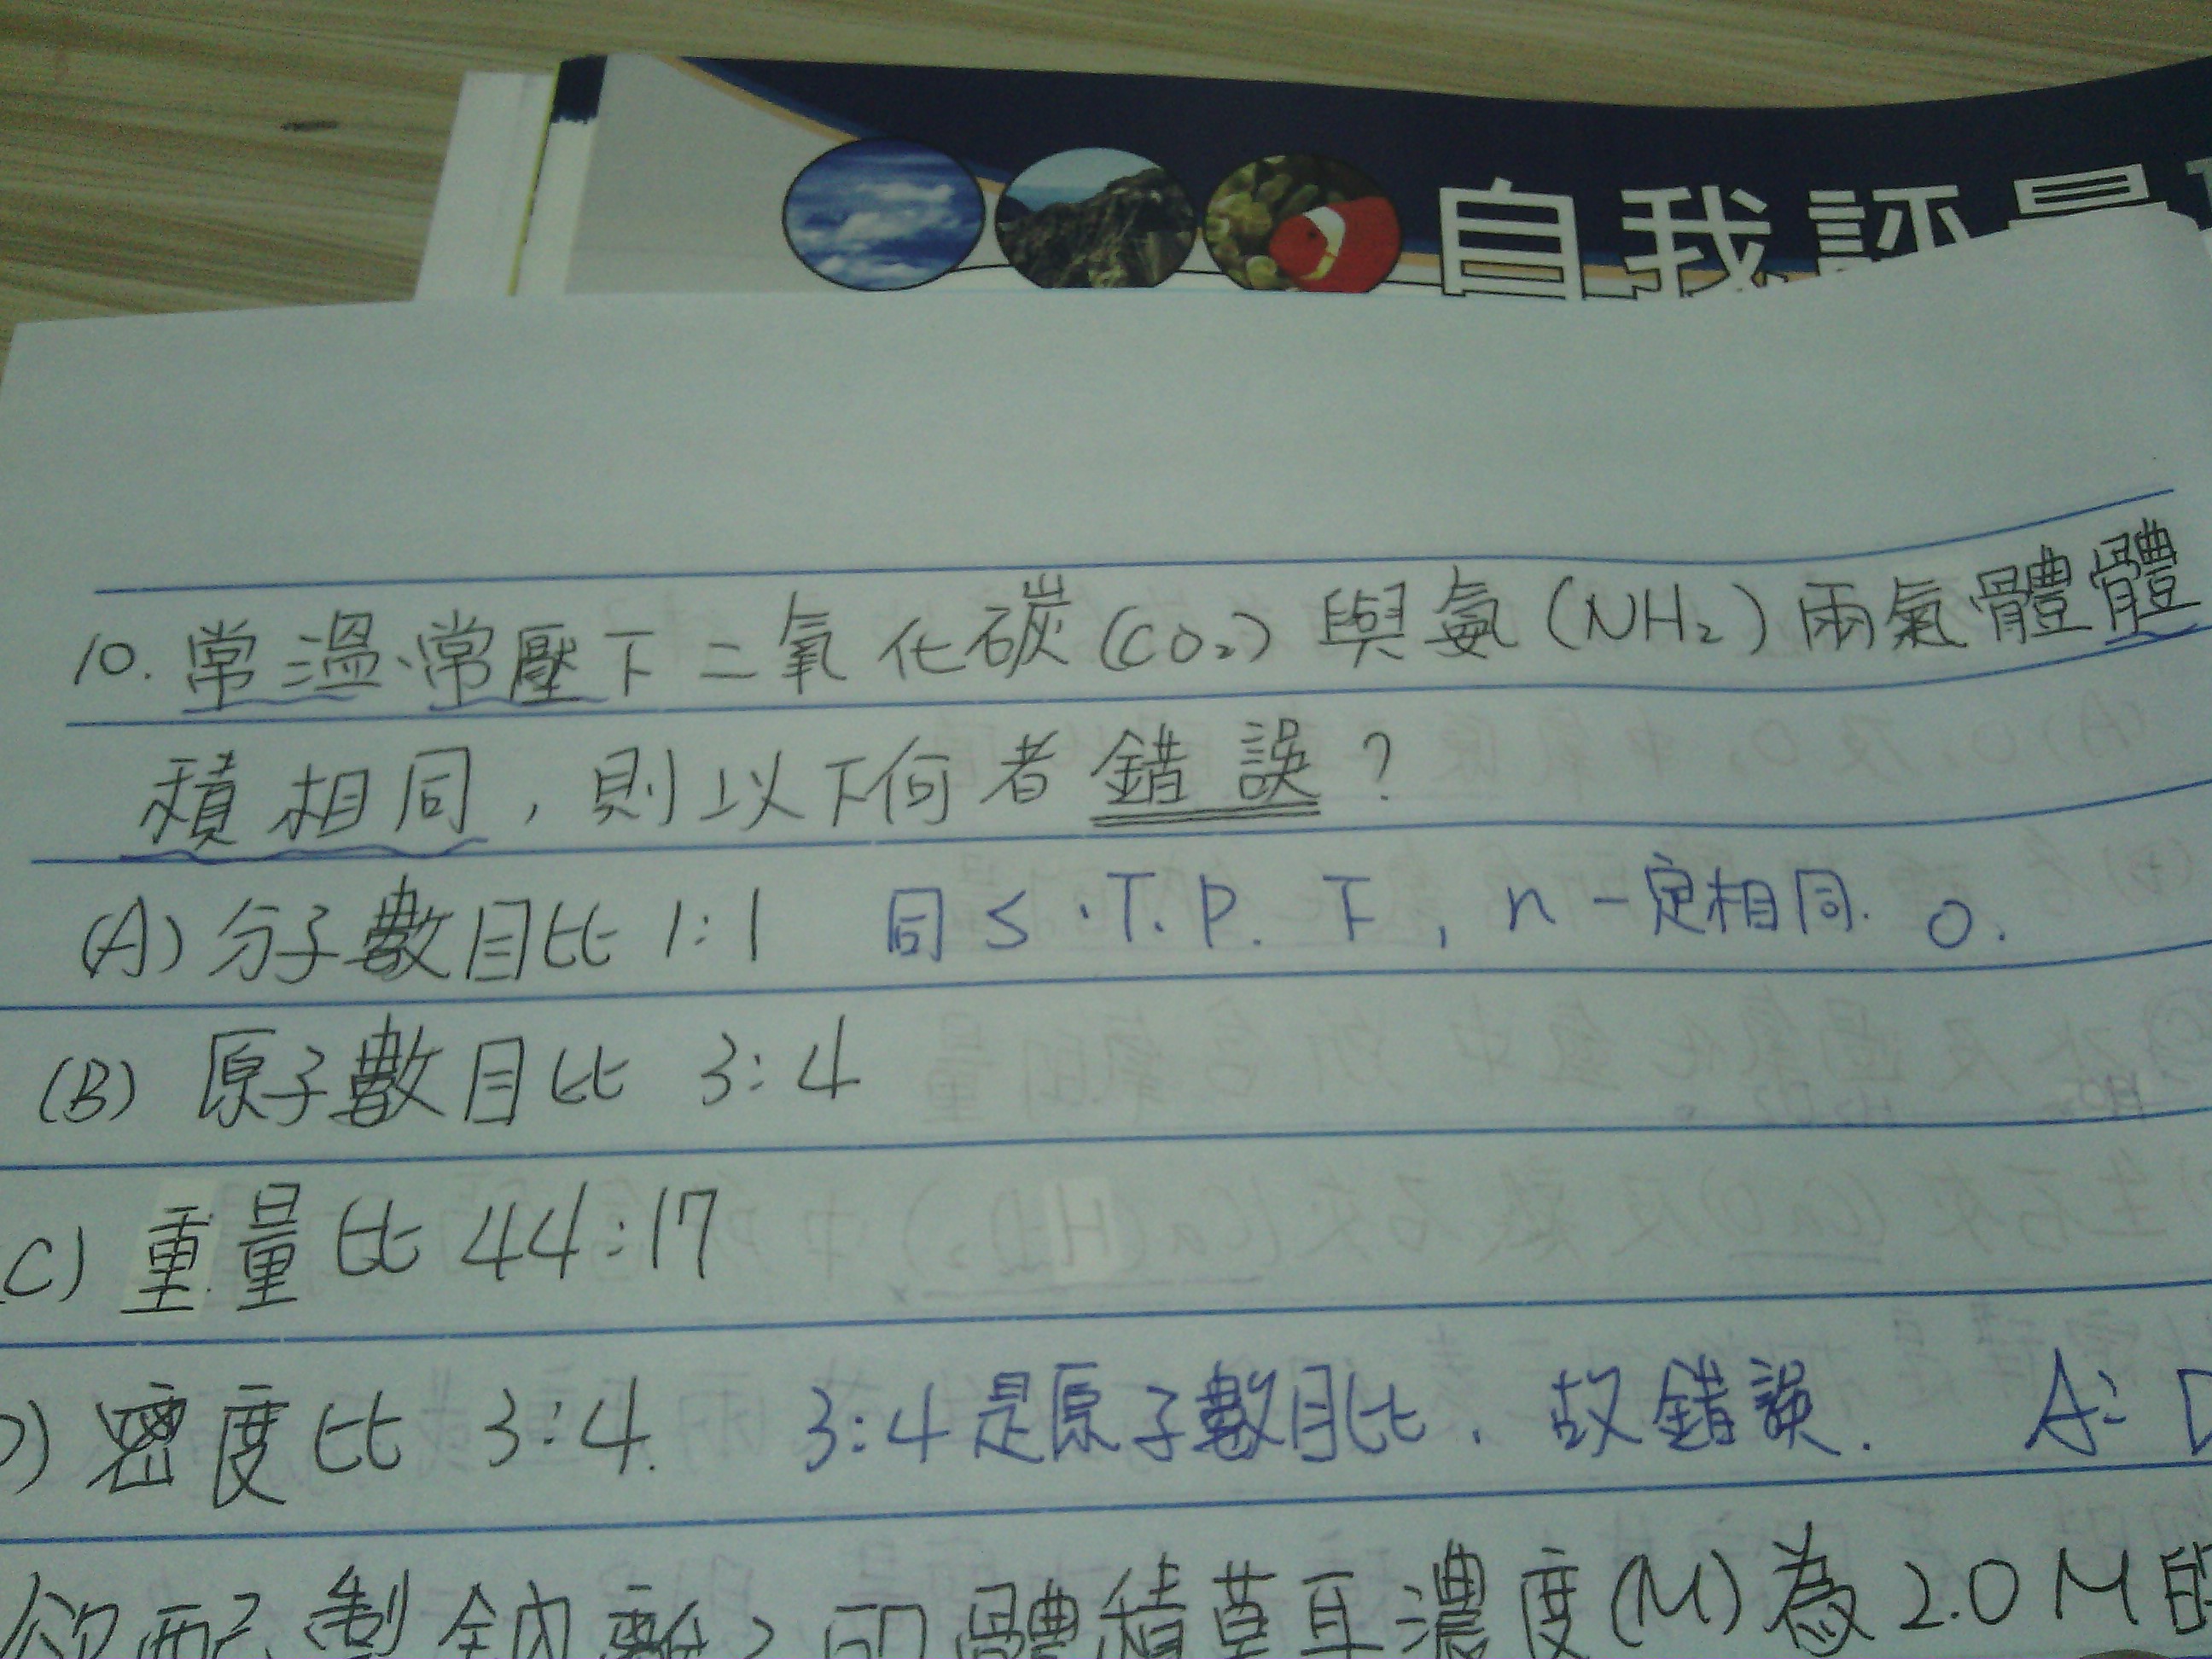 自我評量
10. 常溫、常壓下二氧化碳(CO₂)與氨(NH₂)兩氣體體
積相同，則以下何者錯誤？
(A) 分子數目比 1:1 同S.T.P.下，n一定相同. O.
(B) 原子數目比 3:4
C) 重量比 44:17
D) 密度比 3:4. 3:4是原子數目比．故錯誤． A: D
體積莫耳濃度(M)為2.0M的